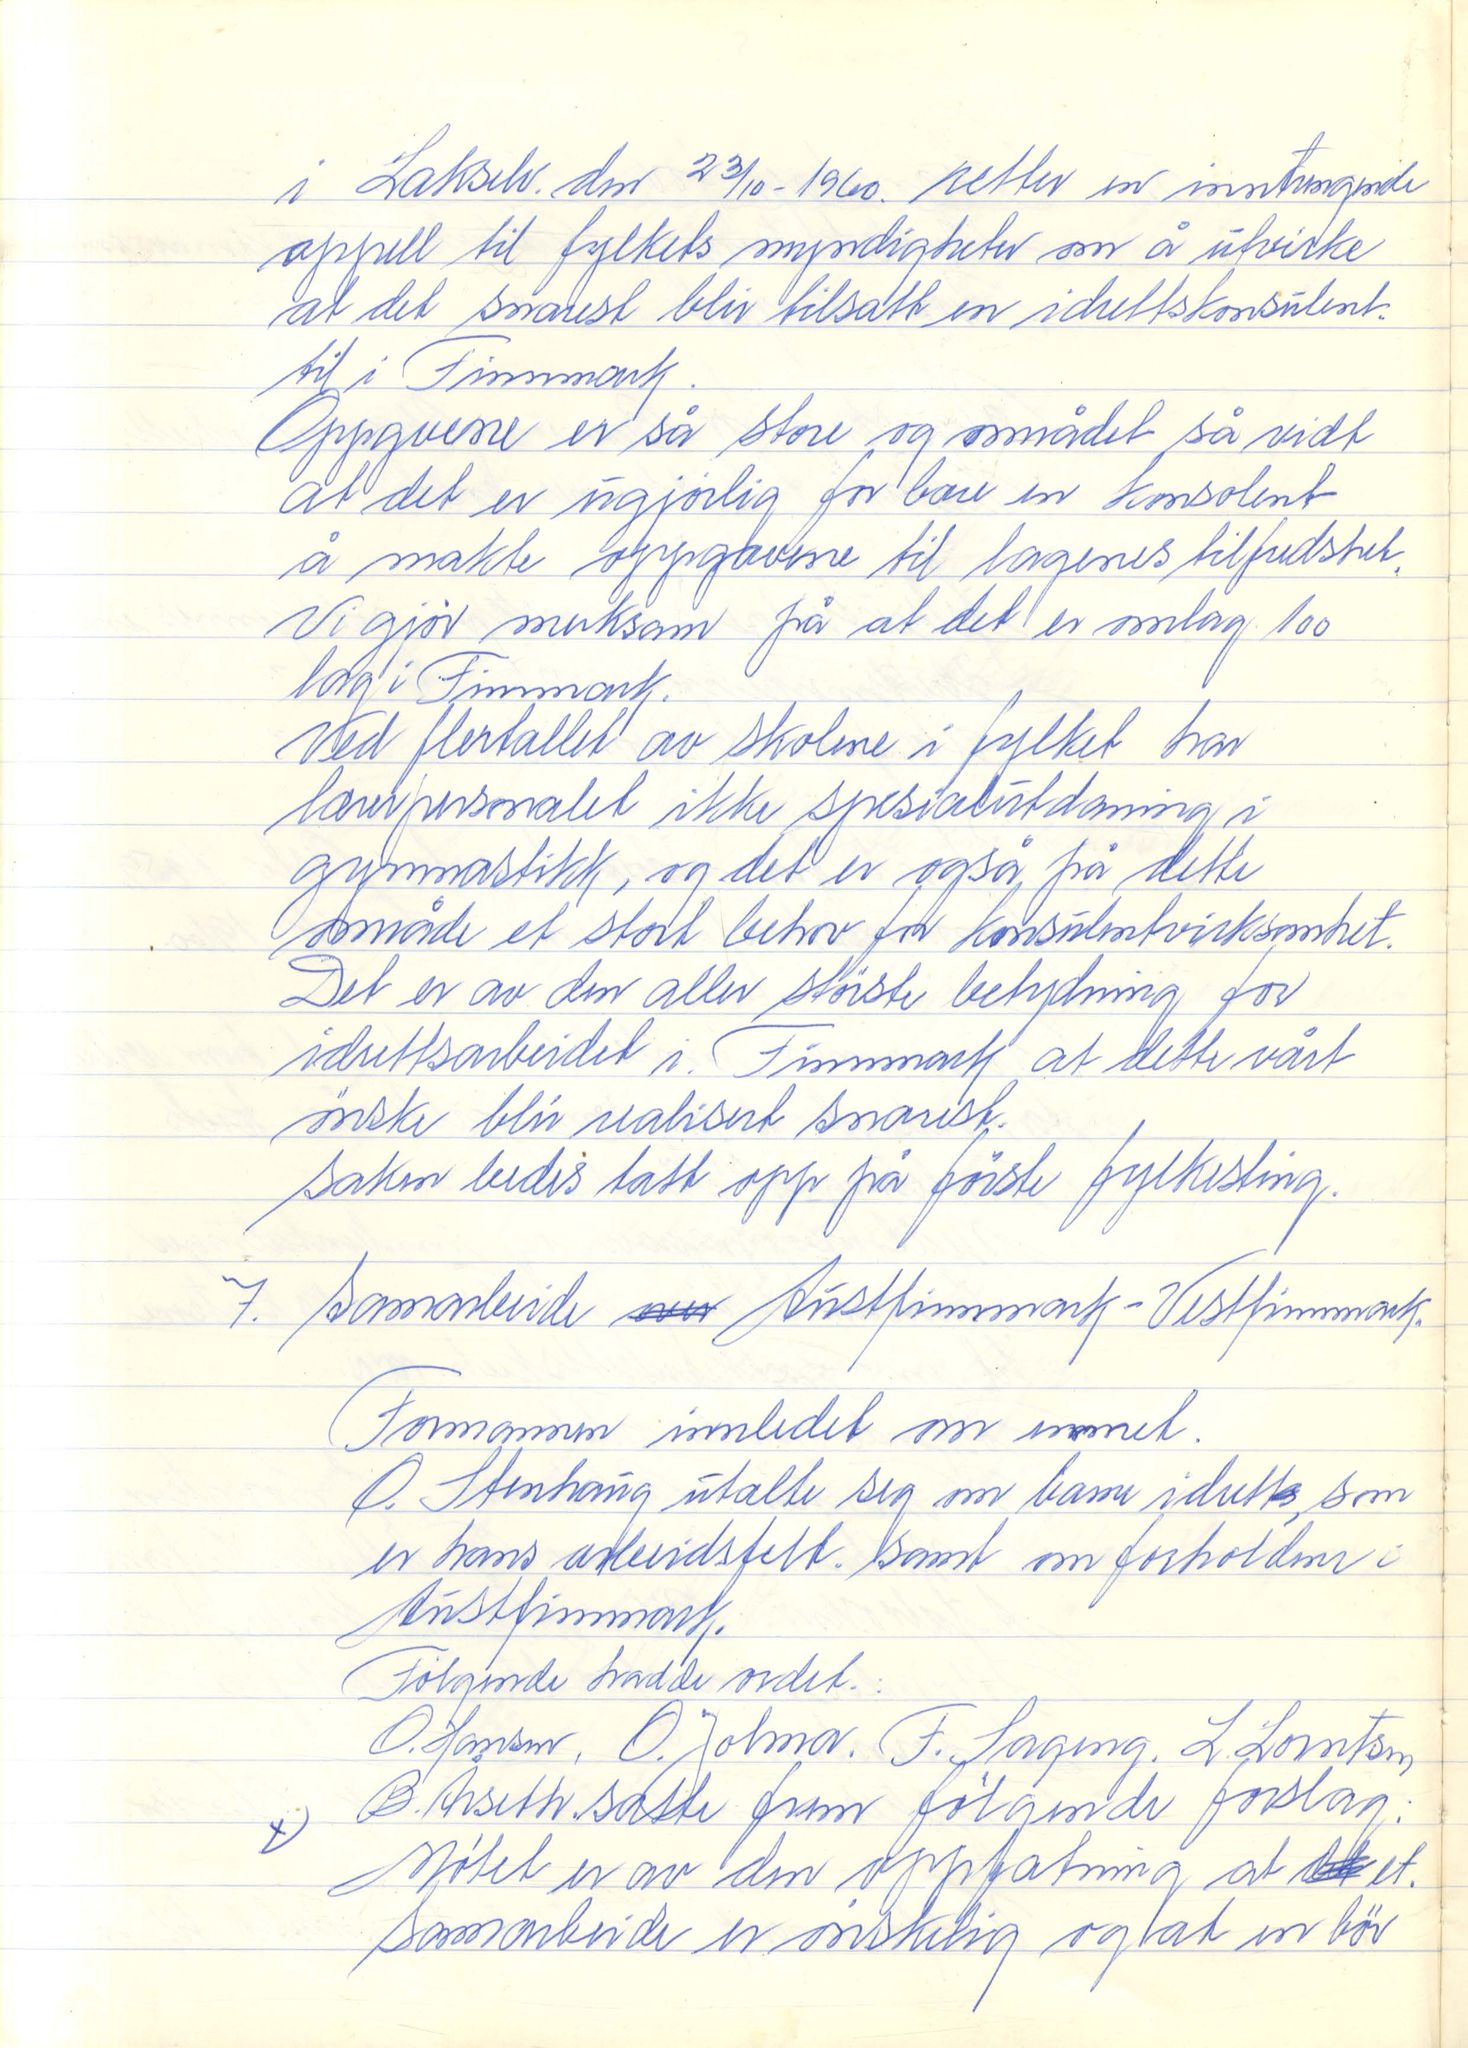 i Lakselv. den 23/10-1960. retter en inntrengende
appell til fylkets myndigheter om å utvirke
at det snarest blir tilsatt en idrettskonsulent.
til i Finnmark.
Oppgvene er så store og området så vidt
at det er ugjørlig for bare en konsolent
å makte oppgavene til lagenes tilfredshet.
Vi gjør merksam på at det er omlag 100
lag i Finnmark.
Ved flertallet av skolene i fylket har
lærerpersonalet ikke spesialutdaning i
gymnastikk, og det er også på dette
område et stort behov for konsulentvirksomhet.
Det er av den aller største betydning for
idrettsarbeidet i. Finnmark at dette vårt
ønske blir realisert snarest.
Saken bedes tatt opp på første fylkesting.
7. Samarbeide Austfinnmark - Vestfinnmark.
Formannen innledet om emnet.
O. Stenhaug utalte seg om barne idrett, som
er hans arbeidsfelt. samt om forholdene i
Austfinnmark.
Følgende hadde ordet.:
O. Hansen, O. Jolma. F. Sageng. L. Lorntsen
B. Arseth. satte frem følgende forslag:
Møtet er av den oppfatning at et.
Samarbeide er ønskelig og at en bør